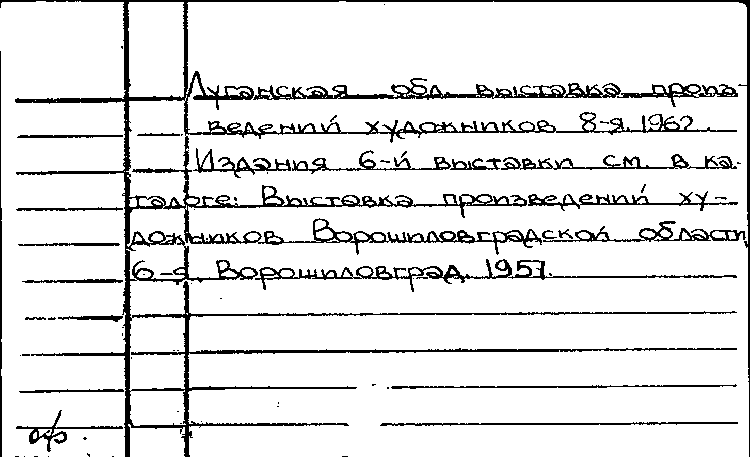 Луганская обл. выставка произ-
ведений художников 8-я. 1962.
Издания 6-й выставки см. в ка-
талоге: Выставка произведений ху-
дожников Ворошиловградской области
6-я. Ворошиловград. 1957.